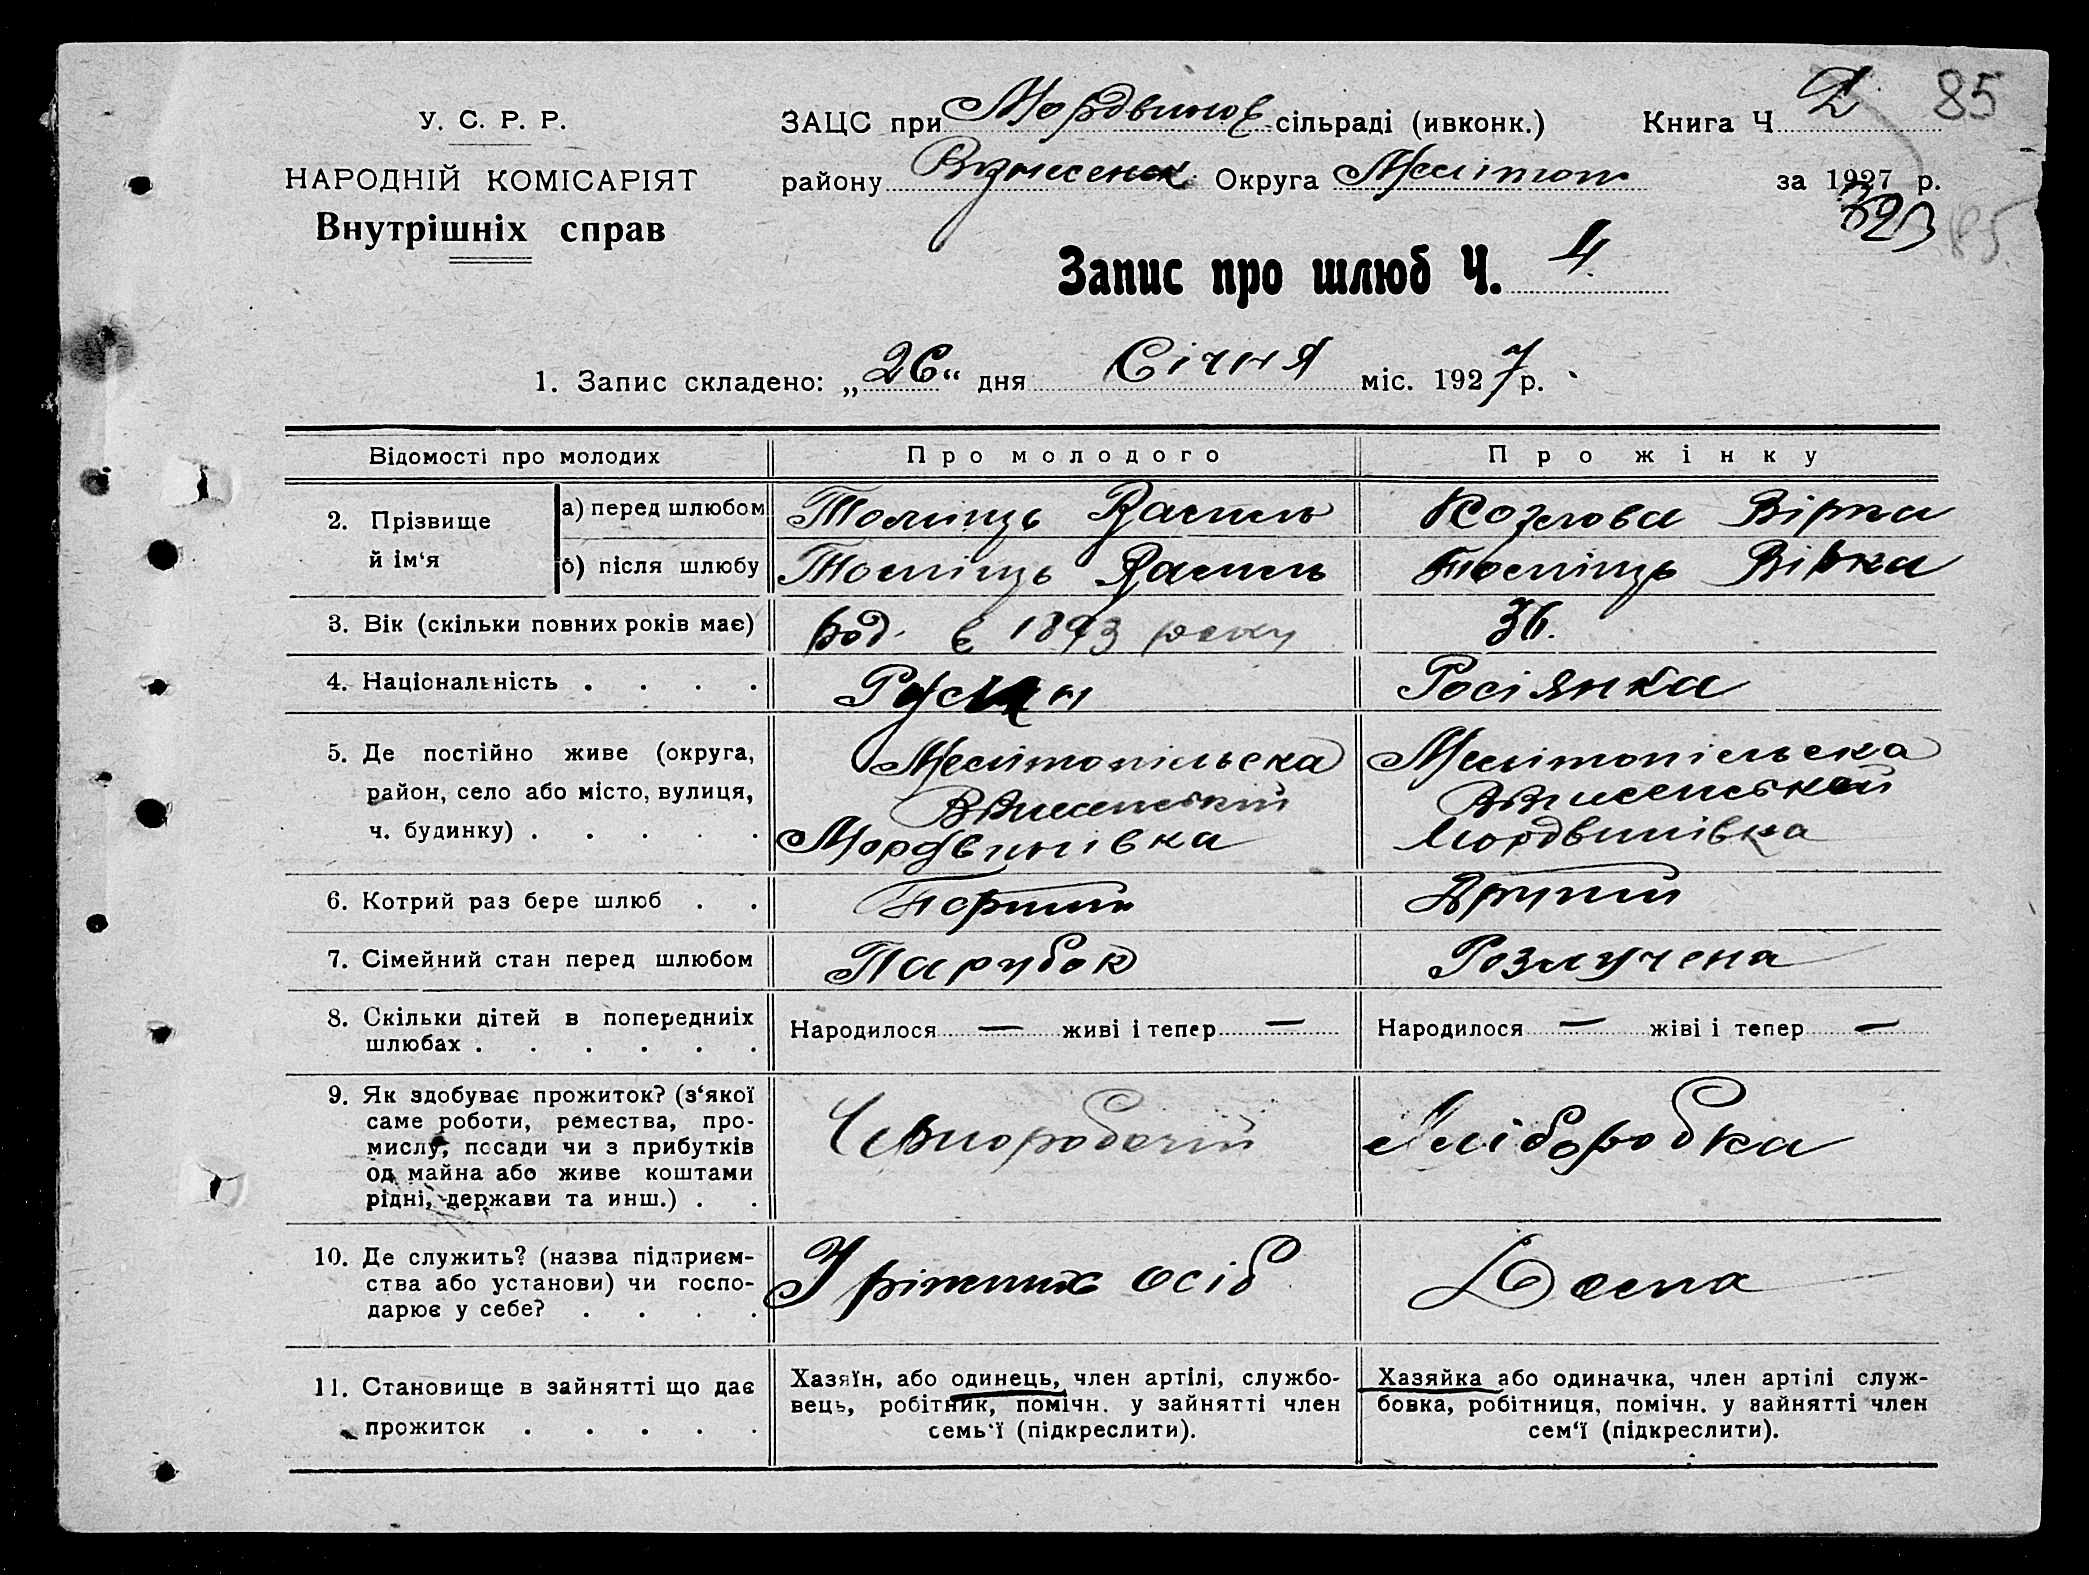 85
У. С. Р. Р.
НАРОДНІЙ КОМІСАРІЯТ
Внутрішніх справ
ЗАЦС при Мордвинов сільраді (ивконк.) Книга Ч
району Вознесенск Округа Мелітоп за 1927 р.
323
85
Запис про шлюб Ч. 4
1. Запис складено: „26“ дня Січня міс. 1927 р.
Відомості про молодих Про молодого Про жінку
2. Прізвище й ім‘я
а) перед шлюбом Василь Козлова Вірка
б) після шлюбу Василь Вірка
3. Вік (скільки повних років має) род. в 1893 року 36.
4. Національність . . . . Росіянка
5. Де постійно живе (округа, Мелітопільска Мелітопільска
район, село або місто, вулиця,
ч. будинку) . . . . . Мордвинівка Мордвинівка
6. Котрий раз бере шлюб . . Перший Другий
7. Сімейний стан перед шлюбом Парубок Розлучена
8. Скільки дітей в попередниіх
шлюбах . . . . . .
Народилося — живі і тепер — Народилося — жіві і тепер —
9. Як здобуває прожиток? (з‘якої
саме роботи, ремества, про-
мислу, посади чи з прибутків
од майна або живе коштами
рідні, держави та инш.) . .
Чорноробочій Хліборобка
10. Де служить? (назва підприєм-
ства або установи) чи госпо-
дарює у себе? . . . .
У ріжних осіб Дома
11. Становище в зайнятті що дає
прожиток . . . . .
Хазяїн, або одинець, член артілі, службо-
вець, робітник, помічн. у зайнятті член
семь‘ї (підкреслити).
Хазяйка або одиначка, член артілі служ-
бовка, робітниця, помічн. у зайнятті член
сем‘ї (підкреслити).